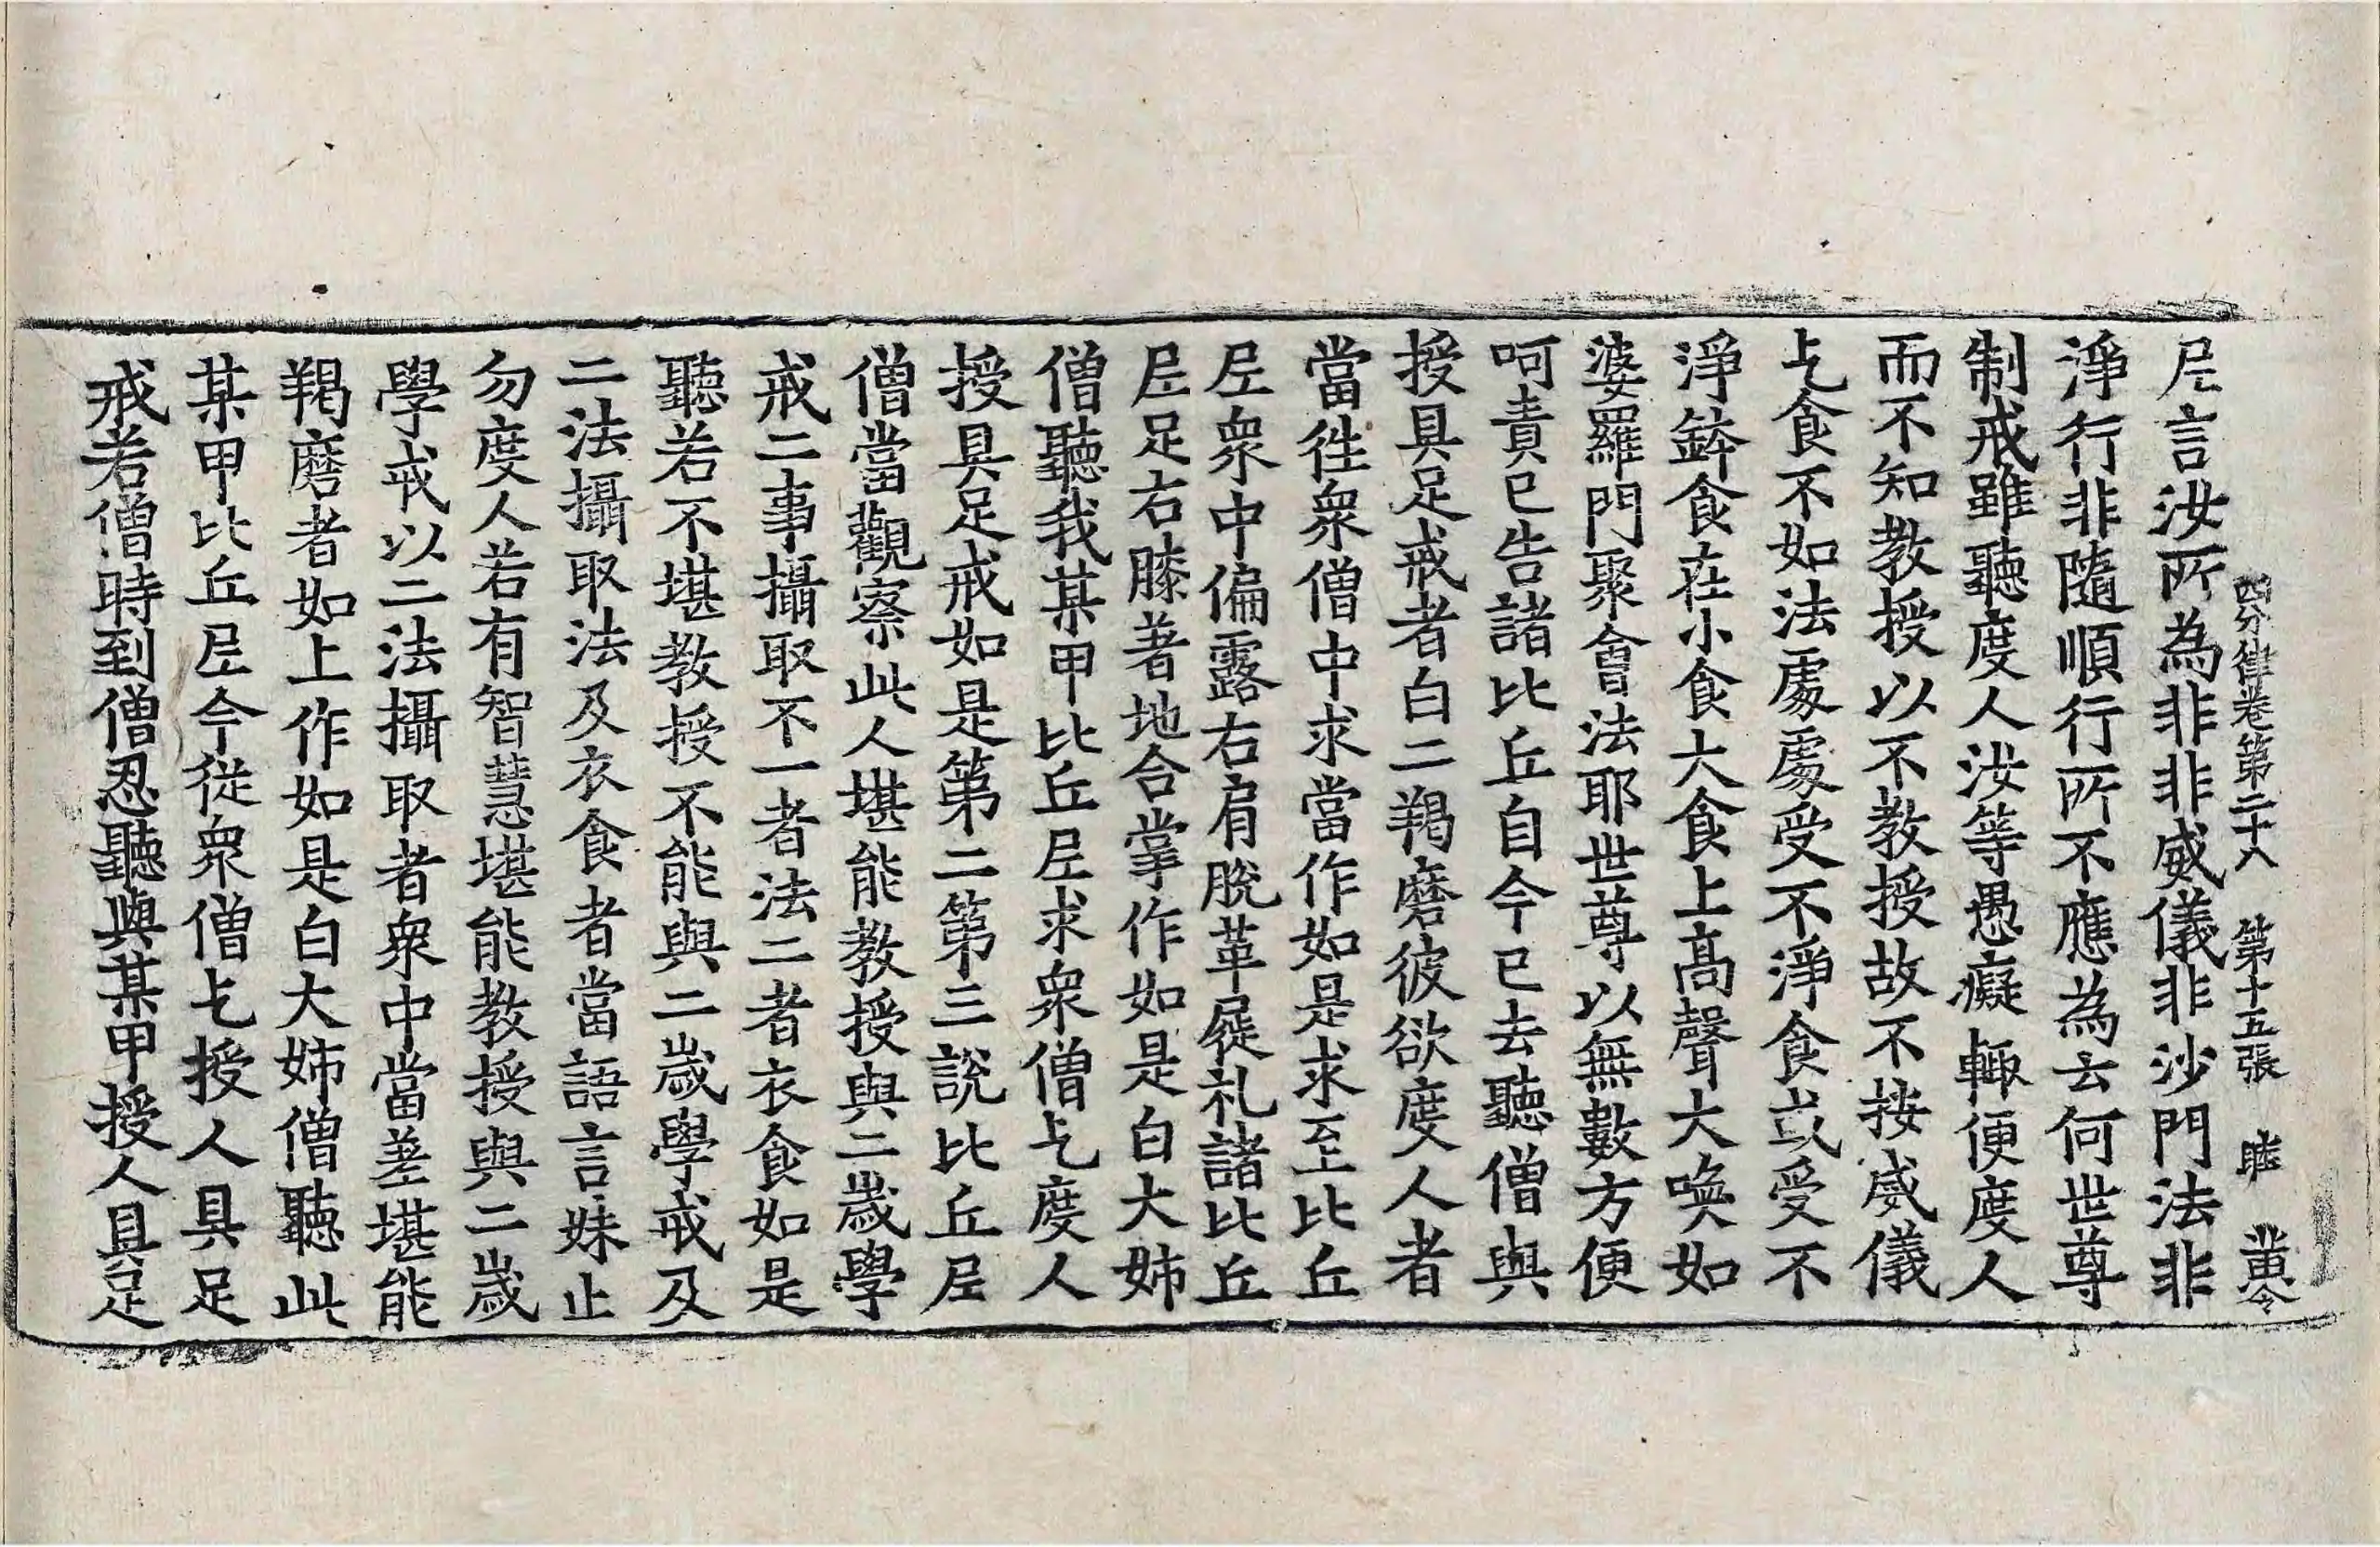 四分律卷第二十八　第十五張　睦　黄令
尼言汝所為非非威儀非沙門法非
淨行非隨順行所不應為云何世尊
制戒雖聽度人汝等愚癡輙便度人
而不知教授以不教授故不按威儀
乞食不如法處處受不淨食或受不
淨鉢食在小食大食上高聲大喚如
婆羅門聚會法耶世尊以無數方便
呵責已告諸比丘自今已去聽僧與
授具足戒者白二羯磨彼欲度人者
當徃衆僧中求當作如是求至比丘
尼衆中偏露右肩脫革屣礼諸比丘
尼足右膝著地合掌作如是白大姊
僧聽我某甲比丘尼求衆僧乞度人
授具足戒如是第二第三說比丘尼
僧當觀察此人堪能教授與二歲學
戒二事攝取不一者法二者衣食如是
聽若不堪教授不能與二歲學戒及
二法攝取法及衣食者當語言妹止
勿度人若有智慧堪能教授與二歲
學戒以二法攝取者衆中當差堪能
羯磨者如上作如是白大姉僧聽此
某甲比丘尼今從衆僧乞授人具足
戒若僧時到僧忍聽與某甲授人具足